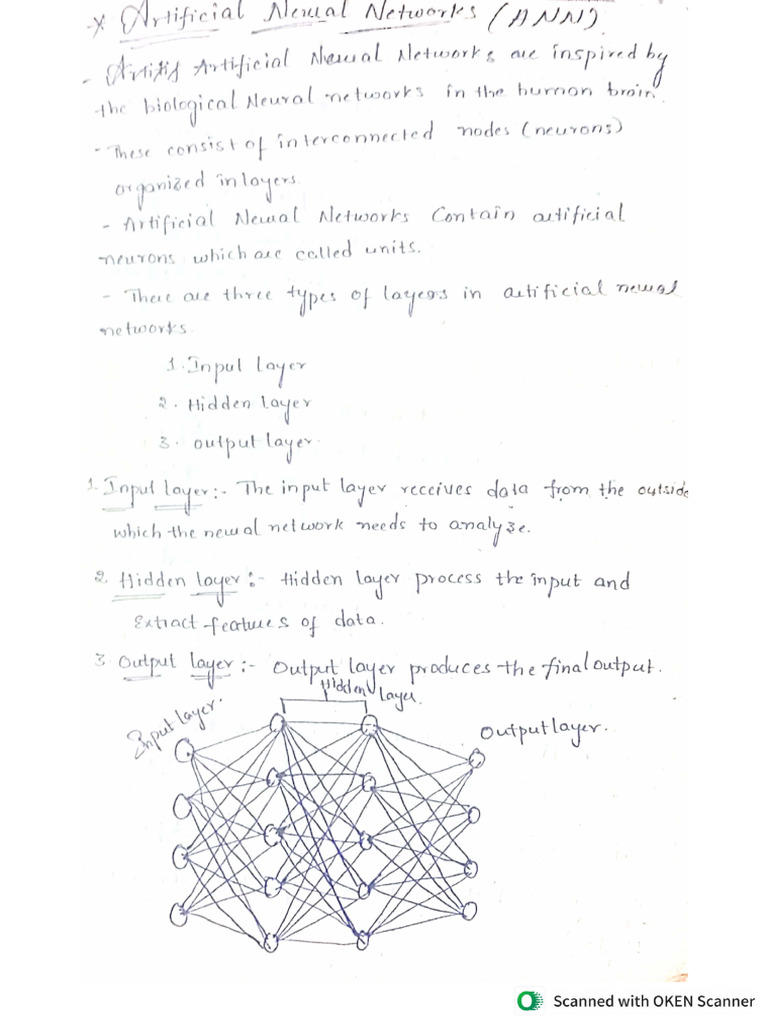 * Artificial Neural Networks (ANN)
- Artificial Neural Networks are inspired by
the biological Neural networks in the human brain.
- These consist of interconnected nodes (neurons)
organized in layers.
- Artificial Neural Networks Contain artificial
neurons which are called units.
- There are three types of layers in artificial neural
networks.
1. Input layer
2. Hidden layer
3. output layer.
1. Input layer:- The input layer receives data from the outside
which the neural network needs to analyze.
2. Hidden layer:- Hidden layer process the input and
Extract features of data.
3. Output layer:- Output layer produces the final output.
Hidden layer.
Input layer.
Output layer.
Scanned with OKEN Scanner